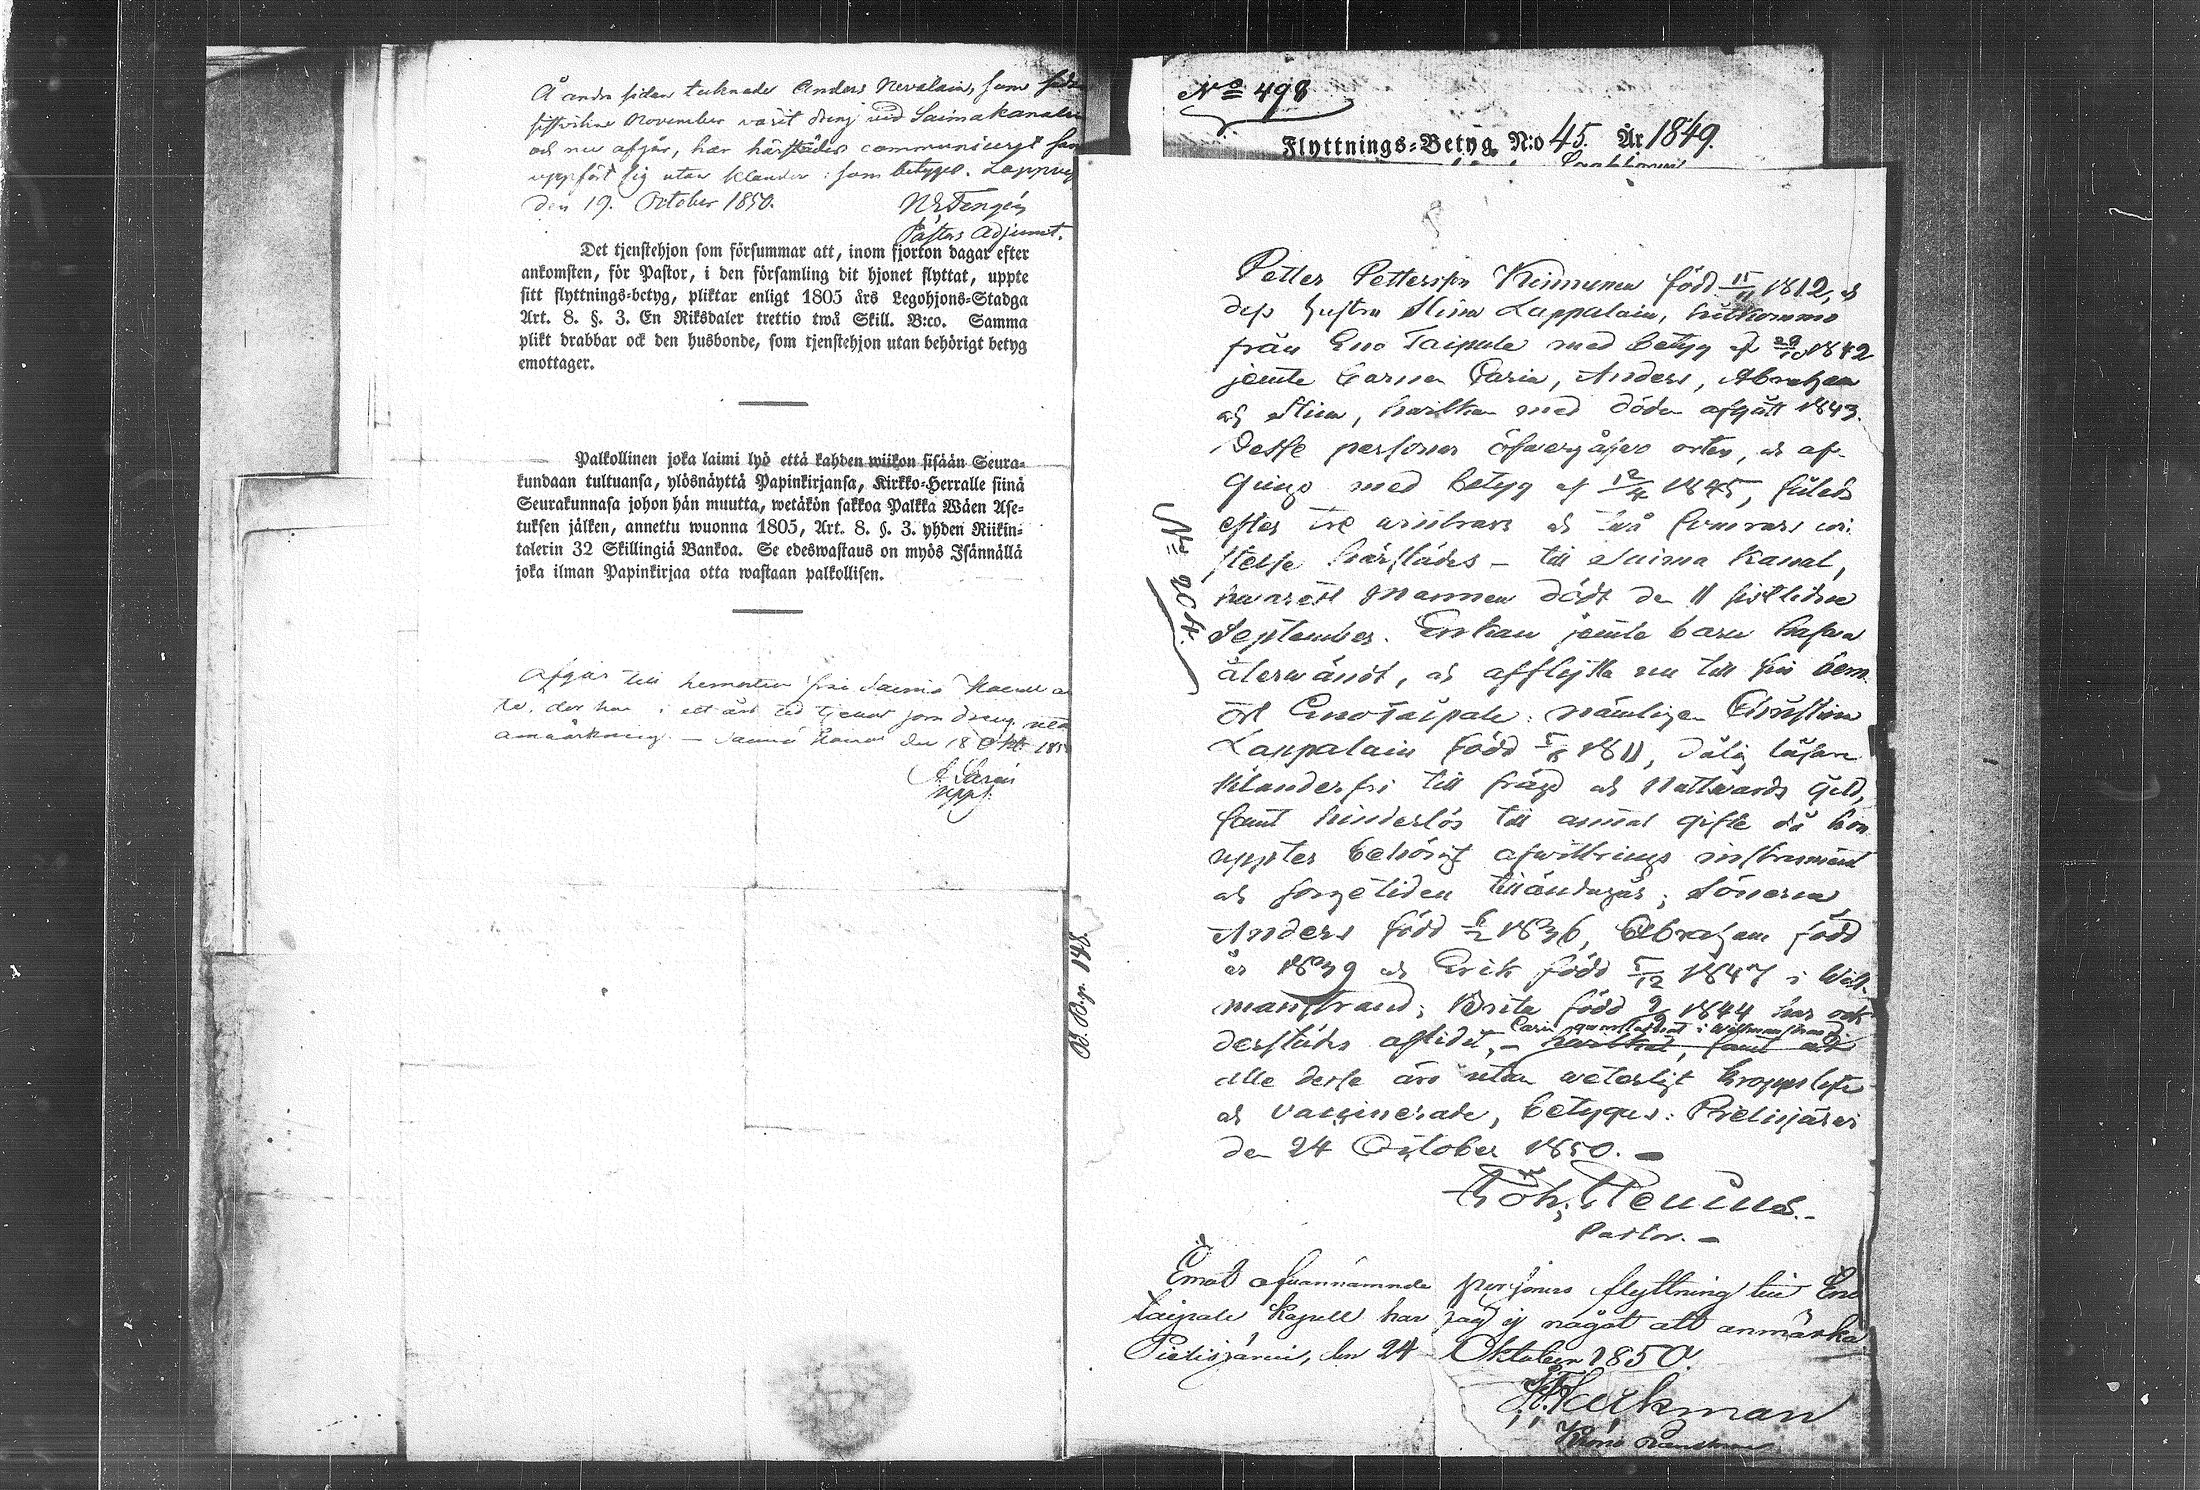 Å andra sidan tecknade Anders Nevalain, som sedan
sistvikne November varit dreng vid Saima kanalen
och nu afgår, har härstädes communicerat samt
uppfört sig utan klander: som betygas. Lappvesi
den 19. October 1850.
Pastors Adjunct.
Det tjenstehjon som försummar att, inom fjorton dagar efter
ankomsten, för Pastor, i den församling dit hjonet flyttat, uppte
sitt flyttnings-betyg, pliktar enligt 1805 års Legohjons-Stadga
Art. 8. §. 3. En Riksdaler trettio twå Skill. B:co. Samma
plikt drabbar ock den husbonde, som tjenstehjon utan behörigt betyg
emottager.
Palkollinen joka laimi lyö että kahden wiikon sisään Seura-
kundaan tultuansa, ylösnäyttä Papinkirjansa, Kirkko-Herralle siinä
Seurakunnasa johon hän muutta, wetäkön sakkoa Palkka Wäen Ase-
tuksen jälken, annettu wuonna 1805, Art. 8. §. 3. yhden Riikin-
talerin 32 Skillingiä Bankoa. Se edeswastaus on myös Isännällä
joka ilman Papinkirjaa otta wastaan palkollisen.
Afgår till hemorten från Saima Kanal
der har i ett års tid tjenat som dreng utan
anmärkning. — Saima Kanal den 18 Okt. 185
No 498
Flyttnings-Betyg N:o 45. År 1849.
Petter Pettersson Keinunen född 15/11 1812, och
dess hustru Stina Lappalain, hitkommo
från Eno Taipale med betyg af 29/10 1842
jemte barnen Caria, Anders, Abraham
och Stina, hvilken med döden afgått 1843.
Desse personer öfvergåfvo orten, och af-
gingo med betyg af 12/4 1845, således
efter tre vintrars och två somrars vi-
stelse härstädes – till Saima Kanal,
hvarest Mannen dödt den 11 sistlidne
September. Enkan jemte barn hafva
återvändt, och afflytta nu till sin hem-
ort Eno Taipale: nämligen Christina
Lappalain född 5/6 1811, dålig läsare
klanderfri till frägd och Nattvards gild,
samt hinderlös till annat gifte då hon
uppter behörigt afvittrings instrument
och sorgetiden tilländagår; Sönerna
Anders född 6/2 1836, Abraham född
år 1839 och Erik född 5/12 1847 i Will-
manstrand; Brita född 1844 har ock
Caria qvarstadnat i Willmanstrand
derstädes aflidit, – hvilket, samt att
alle desse äro utan veterligt kroppslyte
och vaccinerade, betygas: Pielisjärvi
den 24 October 1850. –
Joh. Stenius.
Pastor. –
No 204.
B. B. p. 148.
Emot ofvannämnde persons flyttning till Eno
taipale Kapell har jag ej något att anmärka
Pielisjärvi, den 24 Oktober 1850.